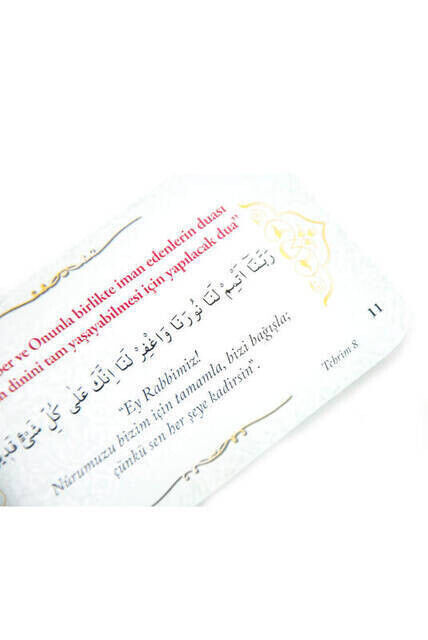 ber ve Onunla birlikte iman edenlerin duası
dinini tam yaşayabilmesi için yapılacak dua"
رَبَّنَا اَتْمِمْ لَنَا نُورَنَا وَاغْفِرْ لَنَا اِنَّكَ عَلٰى كُلِّ شَيْءٍ قَدِي
"Ey Rabbimiz!
Nûrumuzu bizim için tamamla, bizi bağışla;
çünkü sen her şeye kadirsin".
Tehrim 8
11